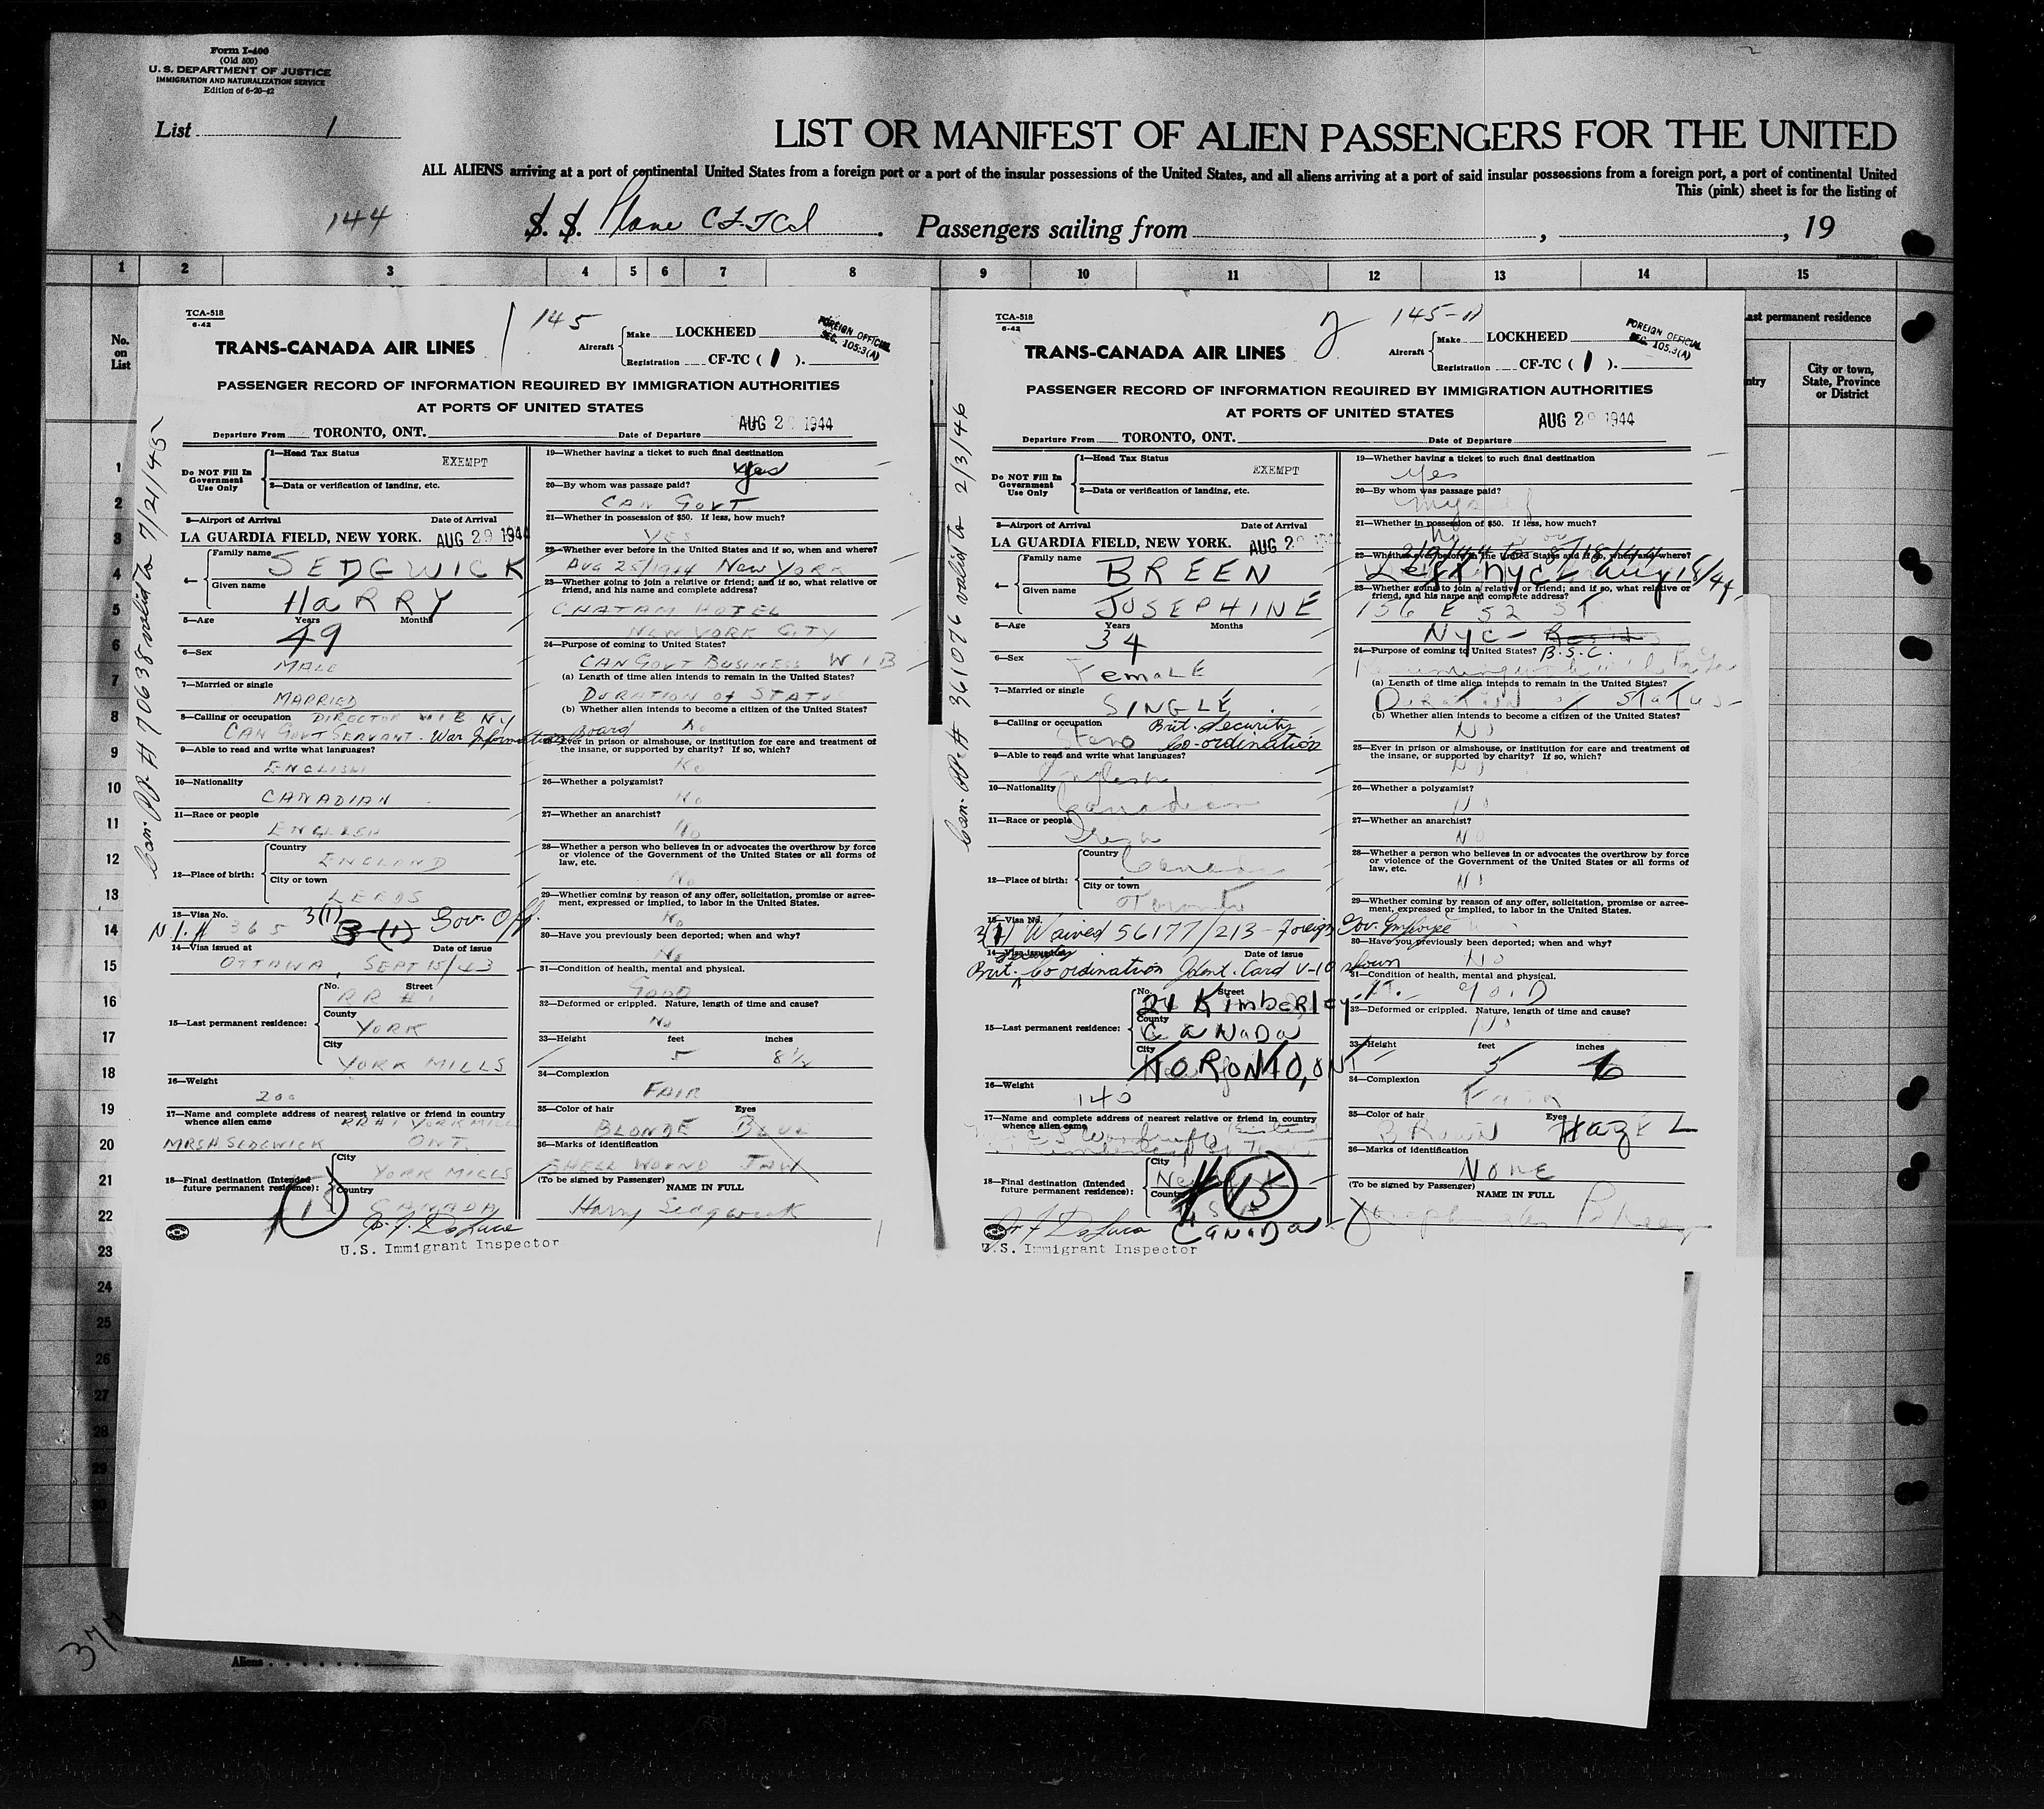 Form I-400
(Old 500)
U. S. DEPARTMENT OF JUSTICE
IMMIGRATION AND NATURALIZATION SERVICE
Edition of 6-20-42
List 1
LIST OR MANIFEST OF ALIEN PASSENGERS FOR THE UNITED
ALL ALIENS arriving at a port of continental United States from a foreign port or a port of the insular possessions of the United States, and all aliens arriving at a port of said insular possessions from a foreign port, a port of continental United
This (pink) sheet is for the listing of
144 S. S. Plane Passengers sailing from , , 19
1 2 3 4 5 6 7 8 9 10 11 12 13 14 15
No. on List
TCA-518
6-42
145
TRANS-CANADA AIR LINES
Aircraft
Make LOCKHEED
Registration CF-TC ( 1 ).
FOREIGN OFFICIAL
SEC. 105.3(A)
PASSENGER RECORD OF INFORMATION REQUIRED BY IMMIGRATION AUTHORITIES
AT PORTS OF UNITED STATES
Departure From TORONTO, ONT. Date of Departure AUG 29 1944
Can. PP. # 70638 valid to 7/21/45
Do NOT Fill In Government Use Only
1—Head Tax Status EXEMPT
2—Data or verification of landing, etc.
3—Airport of Arrival Date of Arrival
LA GUARDIA FIELD, NEW YORK. AUG 29 1944
4— Family name SEDGWICK
Given name HARRY
5—Age Years Months
49
6—Sex
MALE
7—Married or single
MARRIED
8—Calling or occupation DIRECTOR WIB NY
CAN GOVT SERVANT - War Information Board
9—Able to read and write what languages?
ENGLISH
10—Nationality
CANADIAN
11—Race or people
ENGLISH
12—Place of birth: Country
ENGLAND
City or town
LEEDS
13—Visa No. 3(1) 3-(1) Gov. Off.
365
14—Visa issued at Date of issue
OTTAWA, SEPT 15/43
15—Last permanent residence: No. Street
RR #1
County
YORK
City
YORK MILLS
16—Weight
200
17—Name and complete address of nearest relative or friend in country whence alien came RR#1 YORK MILLS
MRS H SEDGWICK ONT.
18—Final destination (Intended future permanent residence): City
YORK MILLS
Country
CANADA
U.S. Immigrant Inspector
19—Whether having a ticket to such final destination
Yes
20—By whom was passage paid?
CAN GOVT.
21—Whether in possession of $50. If less, how much?
YES
22—Whether ever before in the United States and if so, when and where?
AUG 25/1944 NEW YORK
23—Whether going to join a relative or friend; and if so, what relative or friend, and his name and complete address?
CHATAM HOTEL
NEW YORK CITY
24—Purpose of coming to United States?
CAN GOVT BUSINESS WIB
(a) Length of time alien intends to remain in the United States?
DURATION of STATUS
(b) Whether alien intends to become a citizen of the United States?
No
25—Ever in prison or almshouse, or institution for care and treatment of the insane, or supported by charity? If so, which?
No
26—Whether a polygamist?
No
27—Whether an anarchist?
No
28—Whether a person who believes in or advocates the overthrow by force or violence of the Government of the United States or all forms of law, etc.
No
29—Whether coming by reason of any offer, solicitation, promise or agreement, expressed or implied, to labor in the United States.
No
30—Have you previously been deported; when and why?
No
31—Condition of health, mental and physical.
GOOD
32—Deformed or crippled. Nature, length of time and cause?
No
33—Height feet inches
5 8½
34—Complexion
FAIR
35—Color of hair Eyes
BLONDE BLUE
36—Marks of identification
SHELL WOUND JAW
(To be signed by Passenger) NAME IN FULL
Harry Sedgwick
TCA-518
6-42
2 145-A
TRANS-CANADA AIR LINES
Aircraft
Make LOCKHEED
Registration CF-TC ( 1 ).
FOREIGN OFFICIAL
SEC. 105.3(A)
PASSENGER RECORD OF INFORMATION REQUIRED BY IMMIGRATION AUTHORITIES
AT PORTS OF UNITED STATES
Departure From TORONTO, ONT. Date of Departure AUG 29 1944
Can. PP. # 361076 valid to 2/3/46
Do NOT Fill In Government Use Only
1—Head Tax Status EXEMPT
2—Data or verification of landing, etc.
3—Airport of Arrival Date of Arrival
LA GUARDIA FIELD, NEW YORK. AUG 29
4— Family name BREEN
Given name JOSEPHINE
5—Age Years Months
34
6—Sex
Female
7—Married or single
SINGLE
8—Calling or occupation Brit. Security
Steno Co-ordination
9—Able to read and write what languages?
English
10—Nationality
Canadian
11—Race or people
12—Place of birth: Country
Canada
City or town
Toronto
13—Visa No.
Waived 56177/213 - Foreign Gov. Employee
14—Visa issued at Date of issue
Brit. Security Co ordination Ident. Card V-10 shown
15—Last permanent residence: No. Street
21 Kimberley
County
CANADA
City
TORONTO, ONT
16—Weight
140
17—Name and complete address of nearest relative or friend in country whence alien came
18—Final destination (Intended future permanent residence): City
Country
15
CANADA
U.S. Immigrant Inspector
19—Whether having a ticket to such final destination
Yes
20—By whom was passage paid?
Myself
21—Whether in possession of $50. If less, how much?
No
22—Whether ever before in the United States and if so, when and where?
Left NYC Aug 18/44
23—Whether going to join a relative or friend; and if so, what relative or friend, and his name and complete address?
156 E 52 ST
NYC - B.S.C.
24—Purpose of coming to United States?
(a) Length of time alien intends to remain in the United States?
Duration of Status
(b) Whether alien intends to become a citizen of the United States?
No
25—Ever in prison or almshouse, or institution for care and treatment of the insane, or supported by charity? If so, which?
No
26—Whether a polygamist?
No
27—Whether an anarchist?
No
28—Whether a person who believes in or advocates the overthrow by force or violence of the Government of the United States or all forms of law, etc.
No
29—Whether coming by reason of any offer, solicitation, promise or agreement, expressed or implied, to labor in the United States.
30—Have you previously been deported; when and why?
No
31—Condition of health, mental and physical.
Good
32—Deformed or crippled. Nature, length of time and cause?
No
33—Height feet inches
5 6
34—Complexion
Fair
35—Color of hair Eyes
Brown HAZEL
36—Marks of identification
NONE
(To be signed by Passenger) NAME IN FULL
Breen
Last permanent residence
City or town, State, Province or District
1
2
3
4
5
6
7
8
9
10
11
12
13
14
15
16
17
18
19
20
21
22
23
24
25
26
27
28
29
30
Aliens